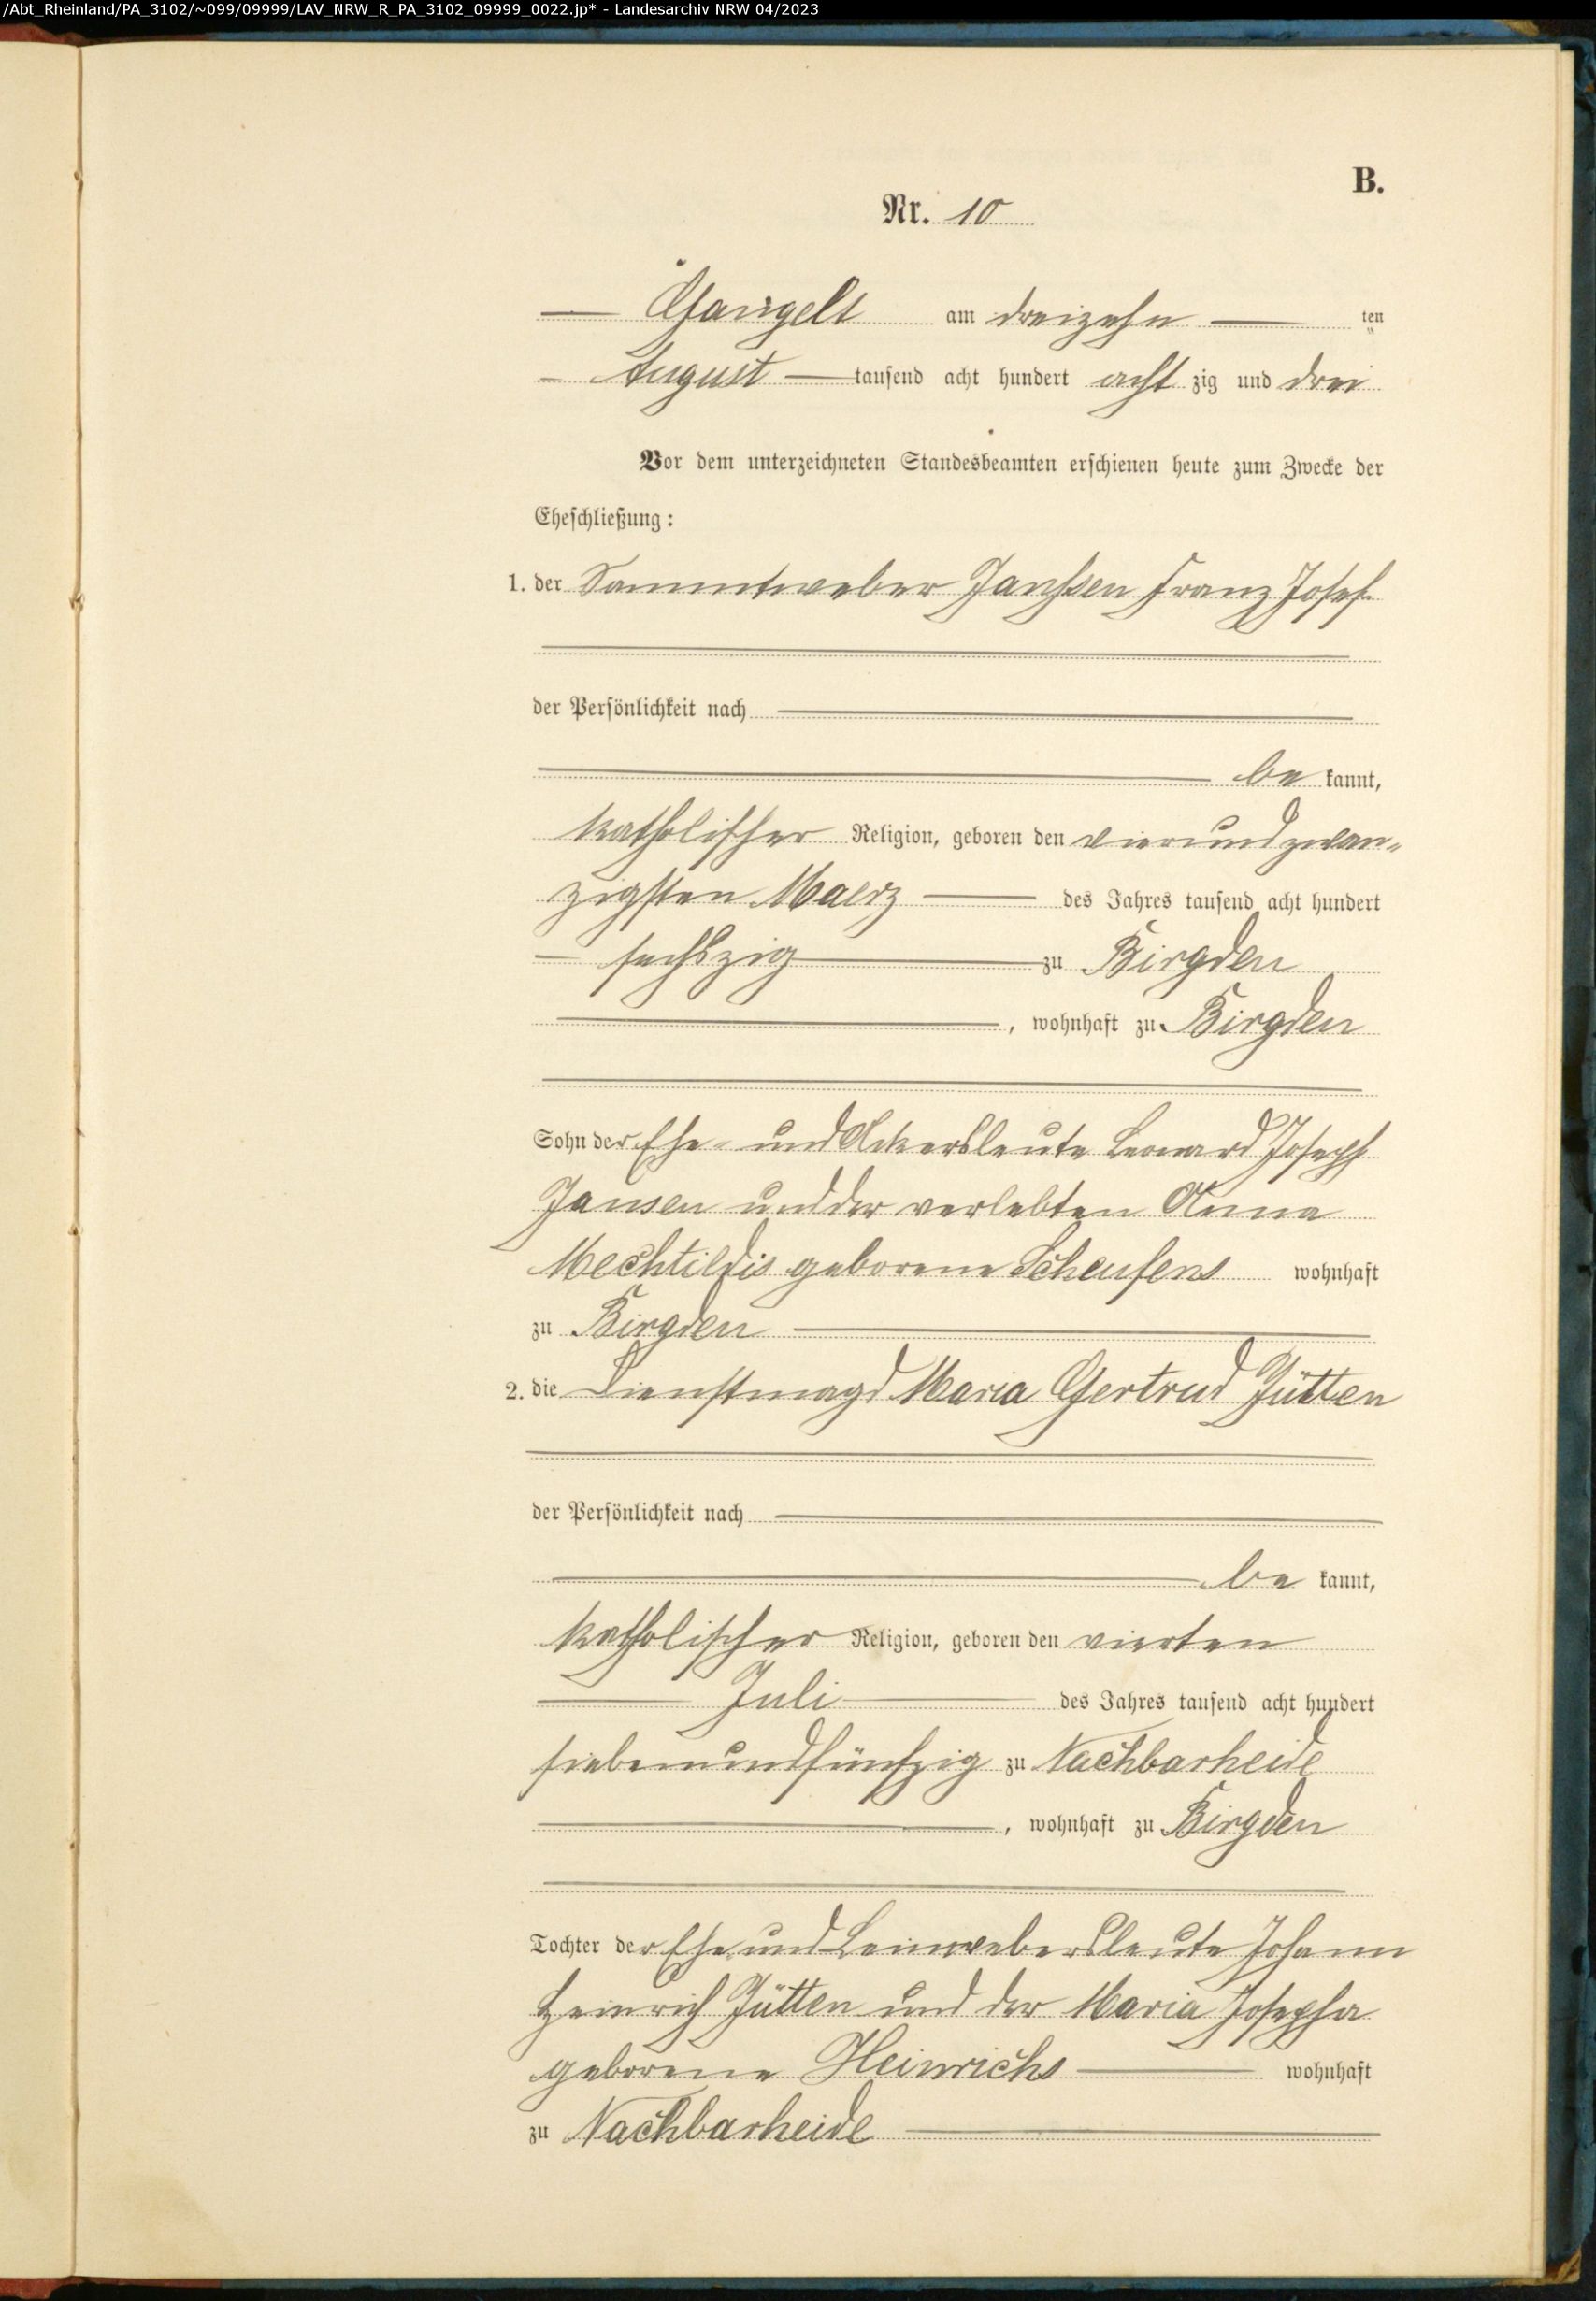 /Abt_Rheinland/PA_3102/~099/09999/LAV_NRW_R_PA_3102_09999_0022.jp* - Landesarchiv NRW 04/2023
B.
Nr. 10
— Gangelt am dreizehn — ten
— August — tausend acht hundert acht zig und drei
Vor dem unterzeichneten Standesbeamten erschienen heute zum Zwecke der
Eheschließung:
1. der Sammtweber Janssen Franz Josef
der Persönlichkeit nach
be kannt,
katholischer Religion, geboren den vierundzwan-
zigsten Maerz — des Jahres tausend acht hundert
— sechszig — zu Birgden
, wohnhaft zu Birgden
Sohn der Ehe- und Ackersleute Leonard Joseph
Jansen und der verlebten Anna
Mechtildis geborene Scheufens wohnhaft
zu Birgden
2. die Dienstmagd Maria Gertrud Jütten
der Persönlichkeit nach
be kannt,
katholischer Religion, geboren den vierten
— Juli — des Jahres tausend acht hundert
siebenundfünfzig zu Nachbarheide
, wohnhaft zu Birgden
Tochter der Ehe und Leinwebersleute Johann
Heinrich Jütten und der Maria Josepha
geborene Heinrichs — wohnhaft
zu Nachbarheide